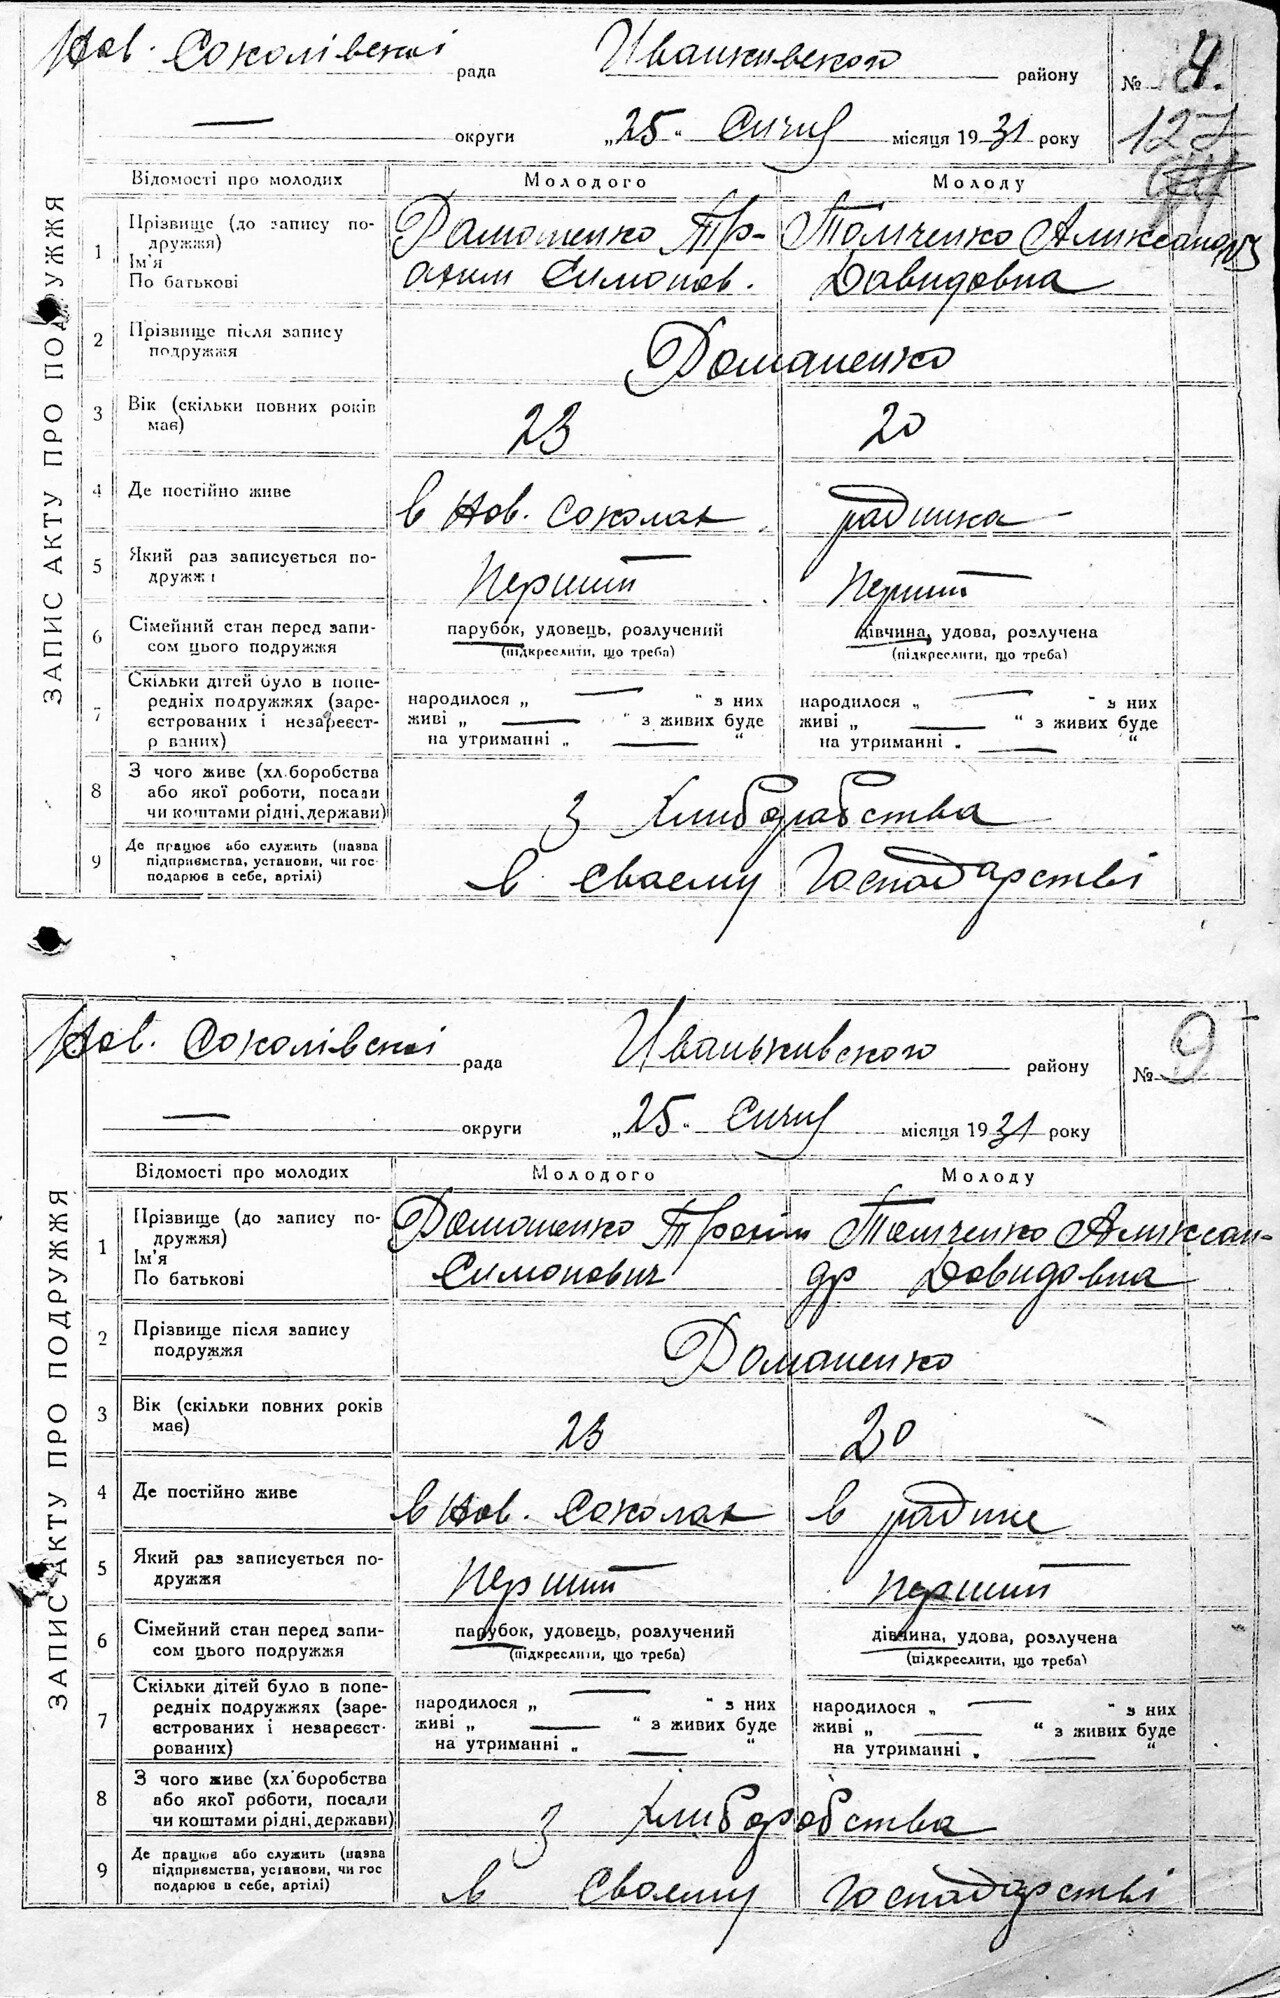 Нов. Соколівскоі рада Иванкивского району № 4.
— округи „25“ Сичня місяця 1931 року
127
ЗАПИС АКТУ ПРО ПОДРУЖЖЯ
Відомості про молодих Молодого Молоду
1 Прізвище (до запису подружжя) Ім'я По батькові
Домошенко Тро- Томченко Александр
охим Симонов. Давидовна
2 Прізвище після запису
подружжя
Доманенко
3 Вік (скільки повних років
має)
23 20
4 Де постійно живе в Нов. Соколах радника
5 Який раз записується по-
дружжі
Перший Перший
6 Сімейний стан перед запи-
сом цього подружжя
парубок, удовець, розлучений дівчина, удова, розлучена
(підкреслити, що треба) (підкреслити, що треба)
7 Скільки дітей було в попе-
редніх подружжях (заре-
єстрованих і незареєст-
р ваних)
народилося „ — “ з них народилося „ — “ з них
живі „ — “ з живих буде живі „ — “ з живих буде
на утриманні „ — “ на утриманні „ — “
8 З чого живе (хл.боробства
або якої роботи, посади
чи коштами рідні, держави)
З хлиборабства
9 Де працює або служить (назва
підприємства, установи, чи гос
подарює в себе, артілі)
в своему Господарстві
Нов. Соколівскоі рада Иваньківского району № 9
— округи „25“ Сичня місяця 1931 року
ЗАПИС АКТУ ПРО ПОДРУЖЖЯ
Відомості про молодих Молодого Молоду
1 Прізвище (до запису по-
дружжя)
Ім'я
По батькові
Домошенко Трохим Томченко Алексан-
Симонович др Давидовна
2 Прізвище після запису
подружжя
Доманенко
3 Вік (скільки повних років
має)
23 20
4 Де постійно живе в Нов. Соколах в радине
5 Який раз записується по-
дружжя
Перший Перший
6 Сімейний стан перед запи-
сом цього подружжя
парубок, удовець, розлучений дівчина, удова, розлучена
(підкреслити, що треба) (підкреслити, що треба)
7 Скільки дітей було в попе-
редніх подружжях (заре-
єстрованих і незареєст-
рованих)
народилося „ — “ з них народилося „ — “ з них
живі „ — “ з живих буде живі „ — “ з живих буде
на утриманні „ — “ на утриманні „ — “
8 З чого живе (хл боробства
або якої роботи, посади
чи коштами рідні, держави)
З хлиборобства
9 Де працює або служить (назва
підприємства, установи, чи гос
подарює в себе, артілі)
в своему Господарстві